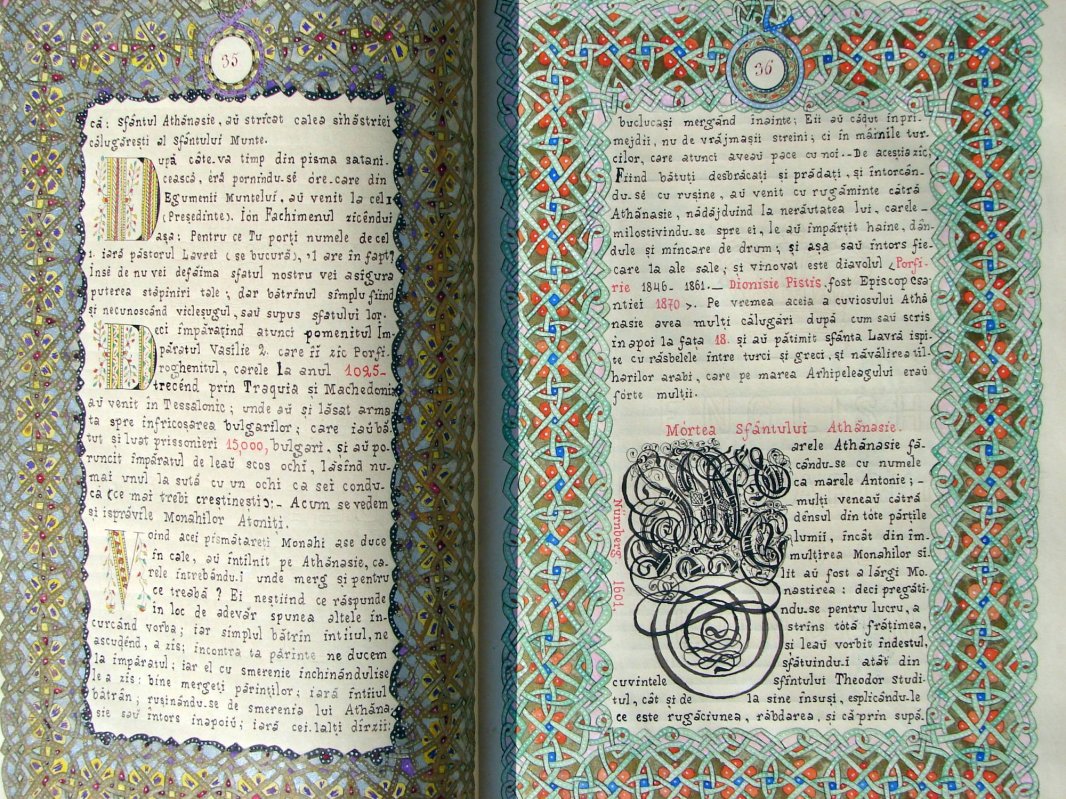 35
că; Sfântul Athănasie, aŭ stricat calea sihăstriei
călugărești al Sfântului Munte.
După câte.va timp din pisma satani.
cească, eră pornindu.sĕ óre.care din
Egumenii Muntelui, aŭ venit la cel 1
(Președinte). Ión Fachimenul zicêndui
așa: Pentru ce Tu porți numele de cel
1. iară păstorul Lavrei (se bucură), 1 are în fapt?
Însĕ de nu vei defăima sfatul nostru vei asigura
puterea stăpiniri tale; dar bătrînul simplu fiind
și necunoscând vicleșugul, sau supus sfatului lor.
Deci împărațind atunci pomenitul Îm
păratul Vasilie 2. care îi zic Porfi
roghenitul, carele la anul 1025–
trecênd prin Traquia și Machedoni
aŭ venit în Tessalonic; unde aŭ și lăsat arma
ta spre înfricoșarea bulgarilor; care iaŭ bă.
tut și luat prissonieri 15,000, bulgari. și aŭ po
runcit împărat de leaŭ scos ochi, lăsind nu.
mai unul la sută cu un ochi ca sei condu.
că (ce mai trebi creștinești): – Acum se vedem
și isprăvile Monahilor Atoniți.
Voind acei pismătareți Monahi ase duce
în cale, au întîlnit pe Athănasie, ca.
rele întrebându.i unde merg și pentru
ce treabă ? Ei neștiind ce răspunde
în loc de adevăr spunea altele în.
curcând vorba; iar simplul bătrîn întîiul, ne
ascuđênd, a zis; încontra ta părinte ne ducem
la împăratul; iar el cu smerenie închinândulise
le a zis: bine mergeți părinților; iară întîiul
bătrân; rușinându.se de smerenia lui Athăna
sie saŭ întors inapoiŭ; iară cei.lalți dîrzii:
36
buclucași mergând înainte; Eii aŭ cădut în pri.
mejdii, nu de vrăjmașii streini; ci în mâinile tur.
cilor, care atunci aveaŭ pace cu noi.–De aceștia zic;
Fiind bătuți desbrăcați și prădați, și întorcân.
du.sĕ cu rușine, aŭ venit cu rugăminte cătră
Athănasie, nădăjduind la nerăutatea lui, carele–
milostivindu.se spre ei, le aŭ împărțit haine, dân.
dule și mîncare de drum; și așa saŭ întors fie.
care la ale sale; și vinovat este diavolul (Porfi.
rie 1846– 1861.– Dionisie Pistis. fost Episcop Csa
ntiei 1870 ). Pe vremea aceia a cuviosului Athă
nasie avea mulți călugări după cum sau scris
înapoi la fața 18. și aŭ pătimit sfânta Lavră ispi
te cu răsbelele între turci și greci, și năvălirea tîl.
harilor arabi, care pe marea Arhipeleagului erau
fórte mulții.
Mórtea Sfântului Athănasie.
Nürnberg 1601
arele Athănasie fă.
cându.se cu numele
ca marele Antonie; –
mulți veneaŭ cătră
dênsul din tóte părțile
lumii, încât din îm.
mulțirea Monahilor si.
lit aŭ fost a lărgi Mo.
nastirea : deci pregăti.
ndu.se pentru lucru, a
strîns tótă frățimea,
și leaŭ vorbit îndestul,
sfătuindu.i atât din
cuvintele sfîntului Theodor Studi
tul, cât și de la sine însuși, esplicându.le
ce este rugăciunea, răbdarea, și că prin supă.